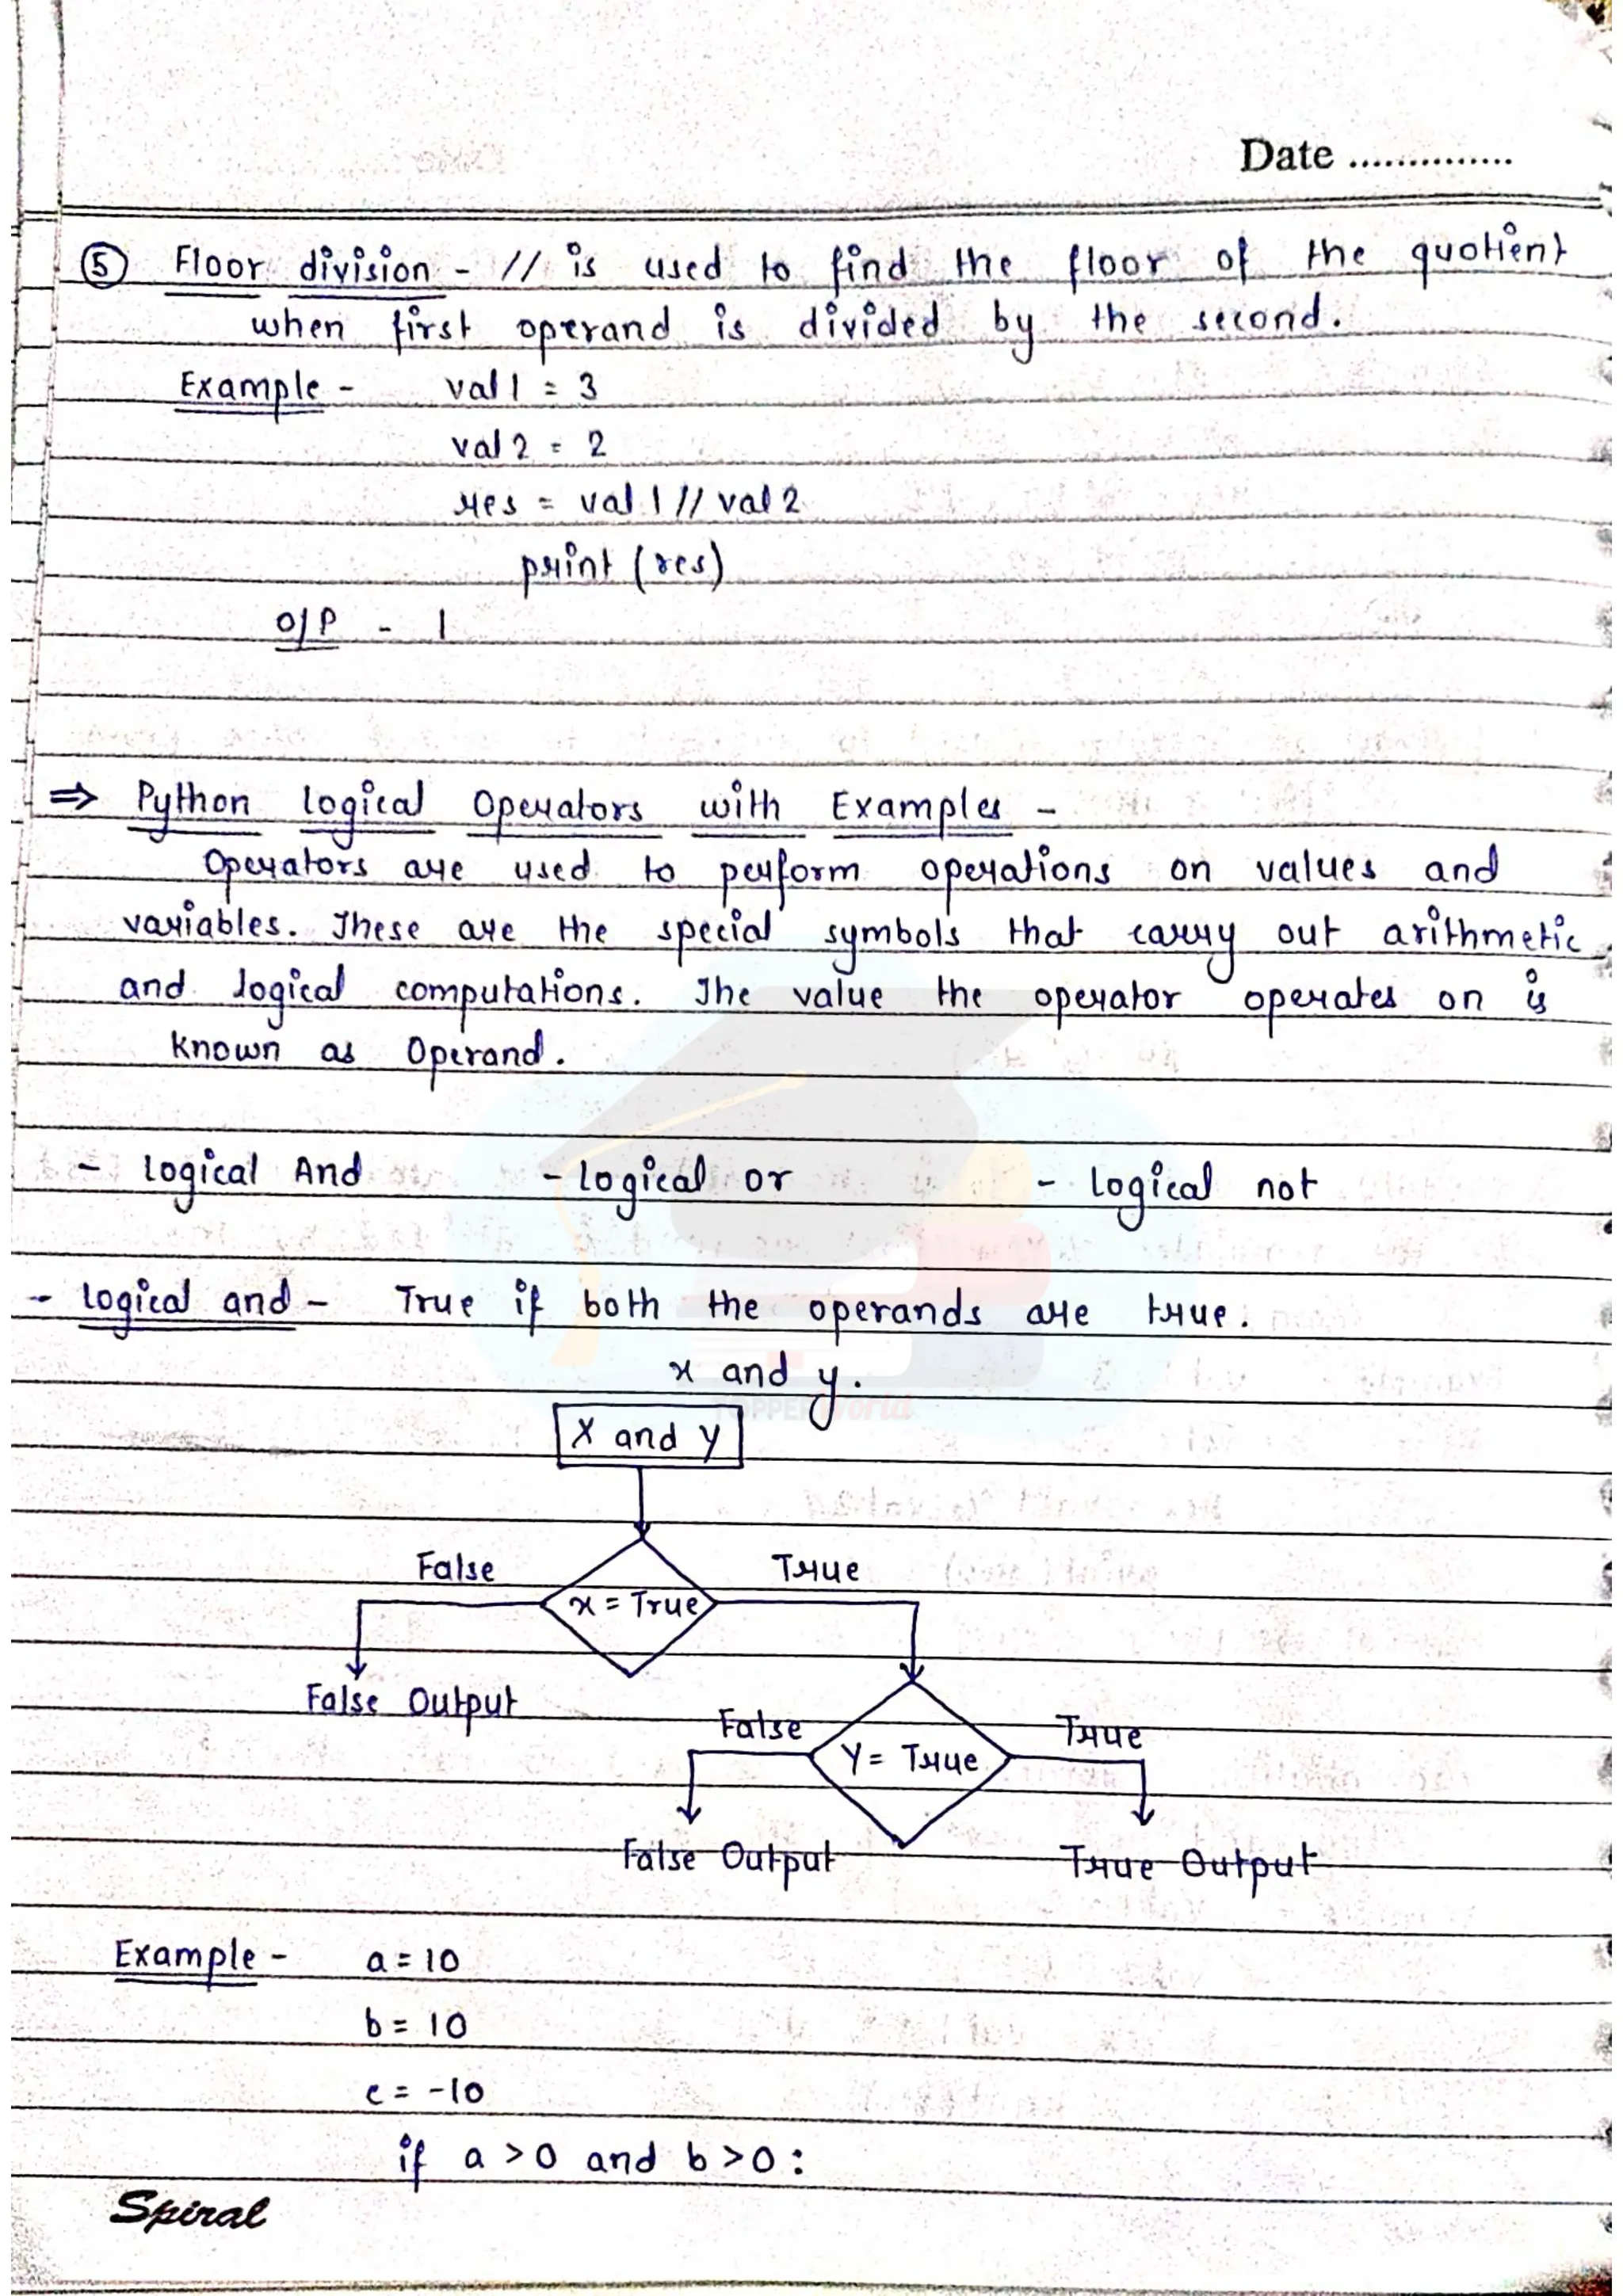 Date ...............
⑤ Floor division - // is used to find the floor of the quotient
when first operand is divided by the second.
Example - val1 = 3
val2 = 2
res = val1 // val2
print (res)
O/P - 1
⇒ Python logical Operators with Examples -
Operators are used to perform operations on values and
variables. These are the special symbols that carry out arithmetic
and logical computations. The value the operator operates on is
known as Operand.
- logical And - logical or - logical not
- logical and - True if both the operands are true.
x and y.
TOPPER World
X and y
False True
x = True
False Output
False True
Y = True
False Output True Output
Example - a = 10
b = 10
c = -10
if a > 0 and b > 0 :
Spiral